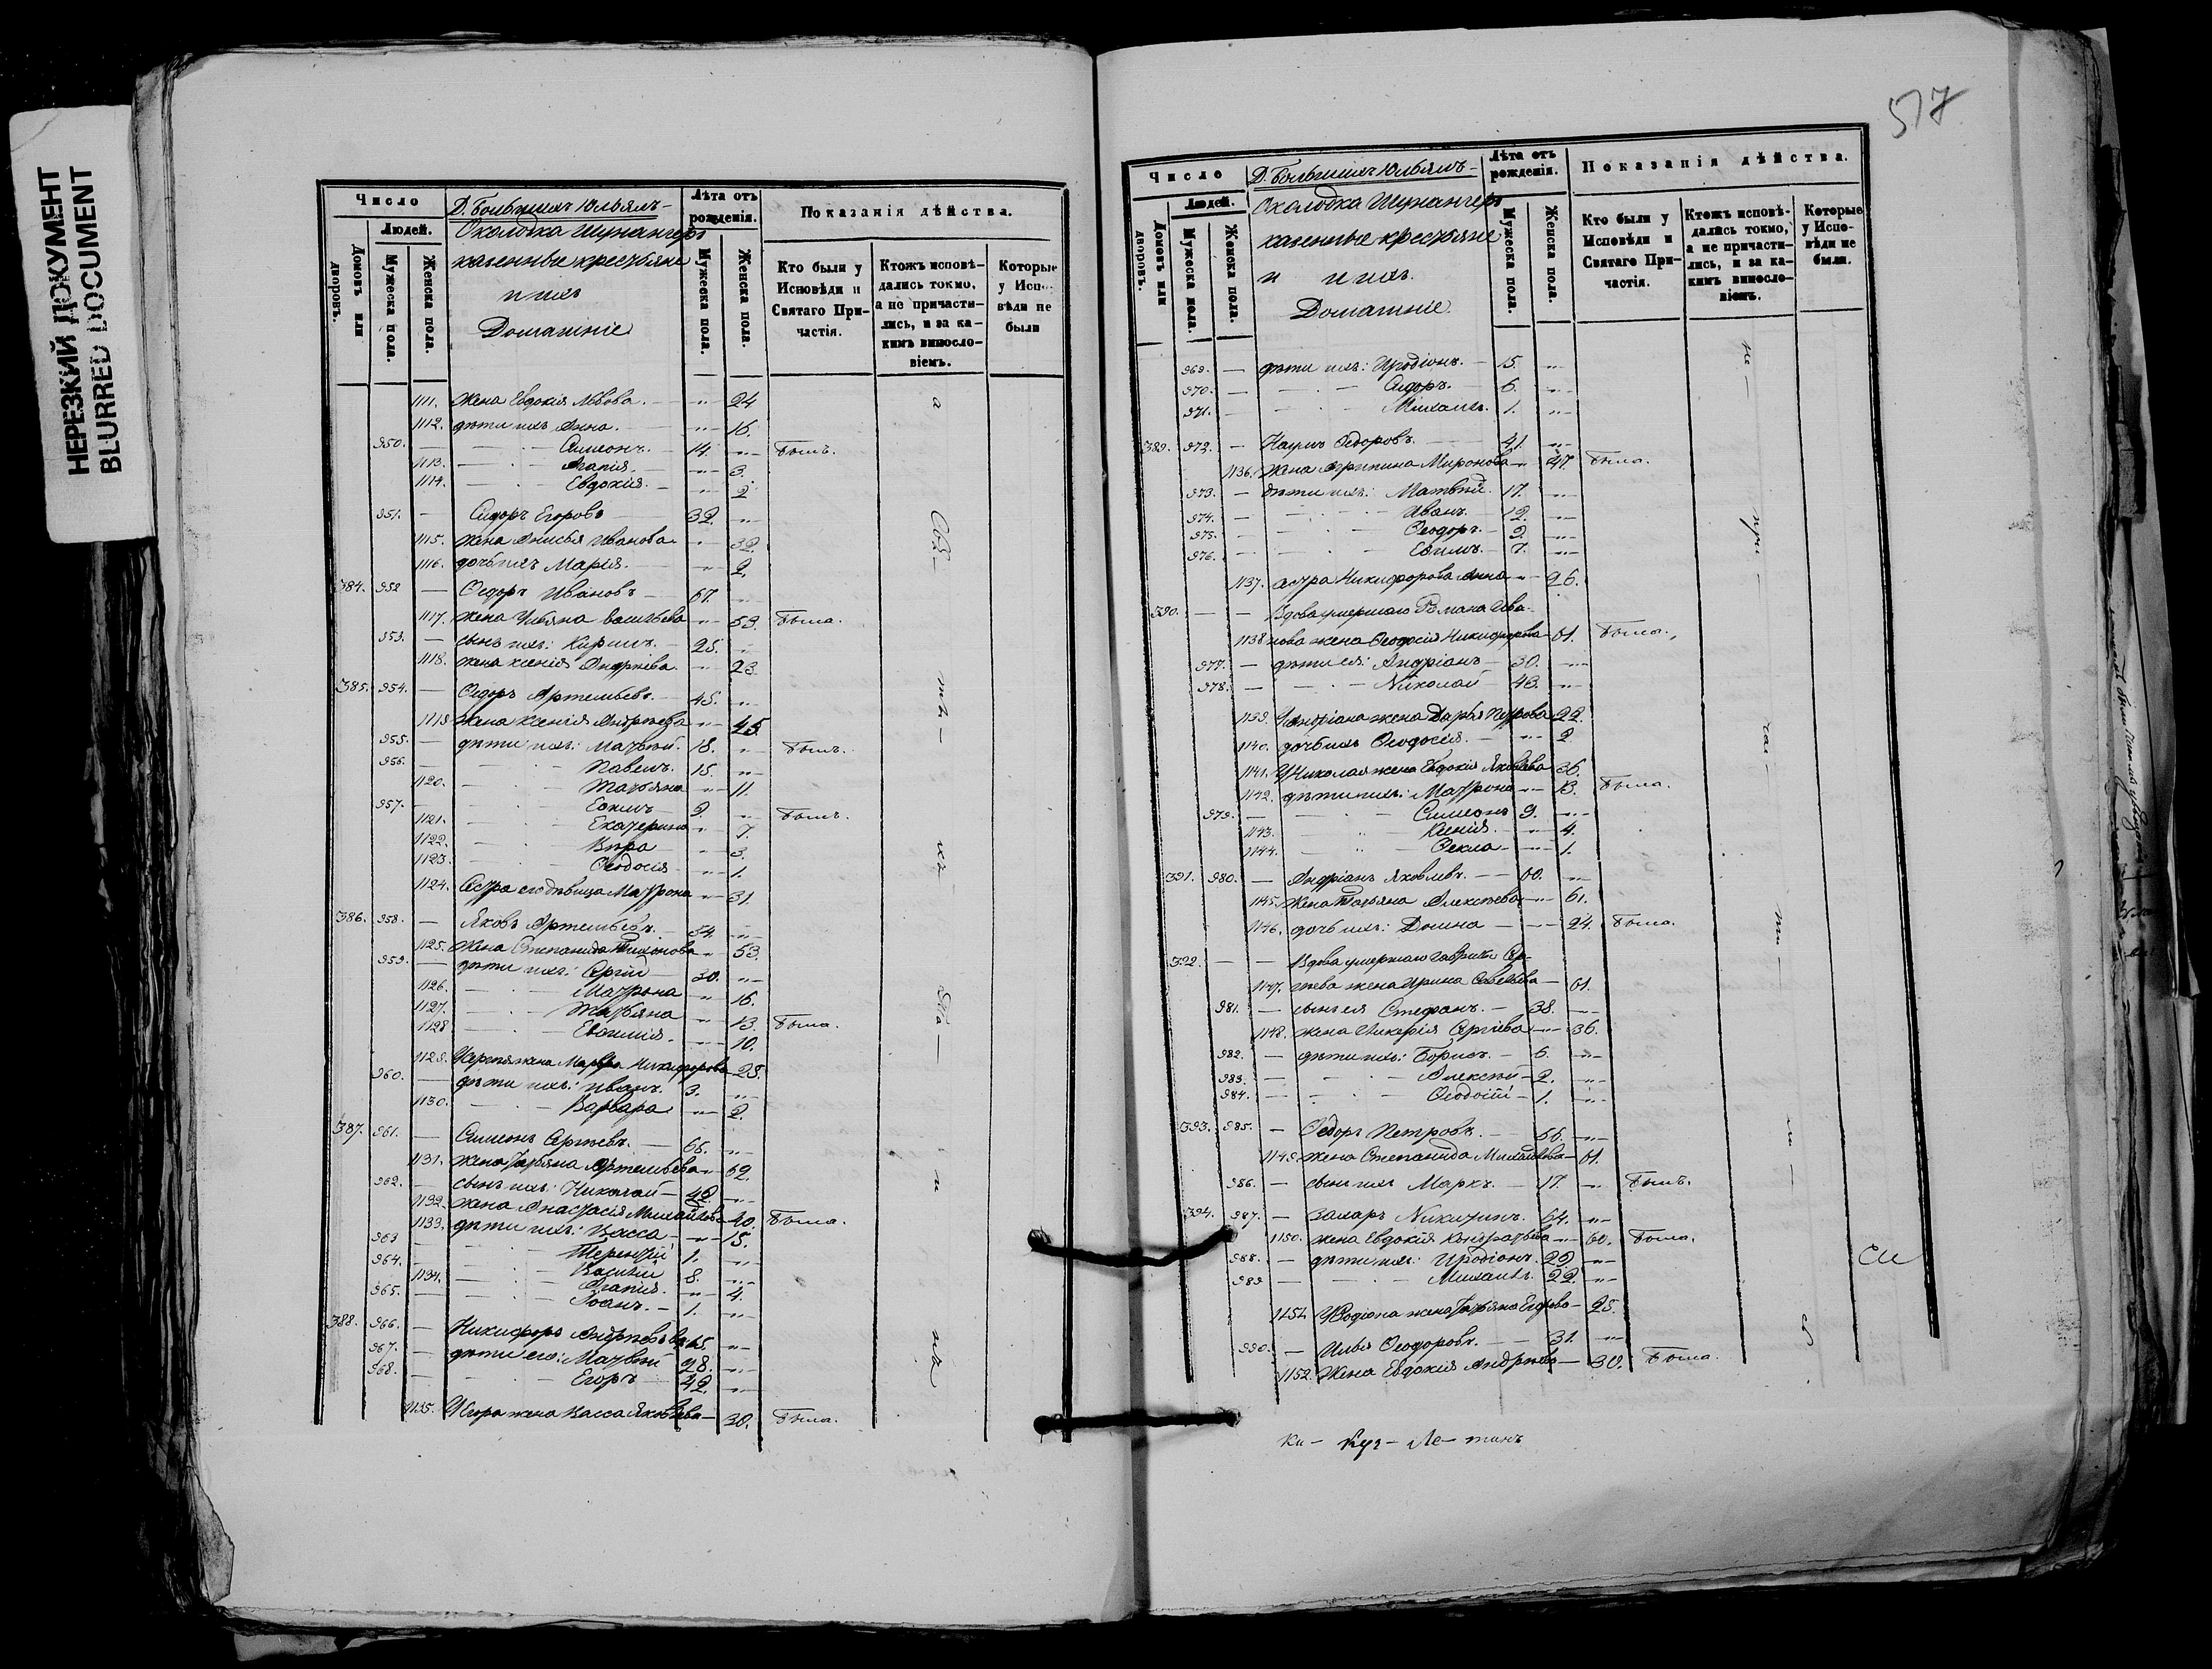 НЕРЕЗКИЙ ДОКУМЕНТ
BLURRED DOCUMENT
Число
Людей.
Домовъ или дворовъ.
Мужеска пола.
Женска пола.
Д. Большихъ Юльялъ-
Околодка Шунангеръ
казенные крестьяне
и ихъ
Домашніе
Лѣта отъ рожденія.
Мужеска пола.
Женска пола.
Показанія дѣйства.
Кто были у Исповѣди и Святаго Причастія.
Ктожъ исповѣдались токмо, а не причастились, и за какимъ винословіемъ.
Которые у Исповѣди не были
1111. жена Евдокія Львова. — „ — 24
1112. дѣти ихъ Анна. — „ — 16.
950. — Симеонъ. — 14. „ Былъ.
1113. — Агапія. — „ — 3.
1114. — Евдокія. — „ — 2
951. — Сидоръ Егоровъ 32. „
1115. жена Анисья Иванова. „ 32.
1116. дочь ихъ Марія. — „ 2.
384. 952 — Ѳедоръ Ивановъ — 67. „
1117. жена Ульяна Васильева „ 59. Была.
953. — сынъ ихъ: Кирилъ. — 25. „
1118. жена Ксенія Андреева. „ 23
385. 954. — Ѳедоръ Артемьевъ. — 45. „
1119 жена Ксенія Андреева „ 45
955. — дѣти ихъ: Матвѣй. 18. „ Былъ.
956. — Павелъ. 15. „
1120. — Татьяна „ 11.
957. — Евѳимъ 9. „ Былъ.
1121. — Екатерина „ 7.
1122. — Вѣра „ 3.
1123. — Ѳеодосія „ 1.
1124. Сестра его дѣвица Матрона „ 31
386. 958. — Яковъ Артемьевъ. — 54. „
1125. жена Степанида Тихонова „ 53.
959. — дѣти ихъ: Сергій — 30. „
1126. — Матрона „ 16.
1127. — Татьяна „ 13. Была.
1128 — Евѳимія. „ 10.
1129. У Сергія жена Марѳа Никифорова — 28.
960. — дѣти ихъ: Иванъ. 3. „
1130. — Варвара „ 2.
387. 961. — Симеонъ Сергѣевъ. — 66. „
1131. жена Татьяна Артемьева „ 62.
962. — сынъ ихъ: Николай — 42 „
1132. жена Анастасія Михайлова 40. Была.
1133. дѣти ихъ: Васса „ 15.
963 — Терентій 1. „
964. — Василій 8. „
1134. — Агапія. „ 4.
965. — Іоанъ. — 1. „
388. 966. — Никифоръ Андреевъ 65. „
967. — дѣти его: Матвѣй 28. „
968. — Егоръ 42. „
1135. У Егора жена Васса Яковлева — 30. Была.
517
Число
Людей.
Домовъ или дворовъ.
Мужеска пола.
Женска пола.
Д. Большихъ Юльялъ-
Околодка Шунангеръ
казенные крестьяне
и ихъ
Домашніе.
Лѣта отъ рожденія.
Мужеска пола.
Женска пола.
Показанія дѣйства.
Кто были у Исповѣди и Святаго Причастія.
Ктожъ исповѣдались токмо, а не причастились, и за какимъ винословіемъ.
Которые у Исповѣди не были.
969. — дѣти ихъ: Иродіонъ. — 15. „
970. — Сидоръ. — 6. „
971. — Михаилъ. 1. „
389. 972. — Наумъ Ѳедоровъ. 41. „
1136. жена Агрипина Миронова „ 47. Была.
973. — дѣти ихъ: Матвѣй. 17. „
974. — Иванъ 12. „
975. — Ѳеодоръ. 9. „
976. — Евѳимъ. 7. „
1137. Сестра Никифорова Анна „ 26.
390. — — Вдова умершаго Романа Ива-
1138 нова жена Ѳеодосія Никифорова — 61. Была.
977. — дѣти ея: Андріанъ — 30. „
978. — Николай 43. „
1139. У Андріана жена Дарья Петрова 22.
1140. дочь ихъ Ѳеодосія. — „ 2.
1141. У Николая жена Евдокія Яковлева 36.
1142. дѣти ихъ: Матрона „ 13. Была.
979. — Симеонъ 9. „
1143. — Ксенія. „ 4.
1144. — Ѳекла „ 1.
391. 980. — Андріанъ Яковлевъ. — 60. „
1145. жена Татьяна Алексѣева „ 61.
1146. дочь ихъ: Домна — „ 24. Была.
392. — — Вдова умершаго Гаврила Сер-
1147. гѣева жена Ирина Савельева — 61.
981. — сынъ ея Стефанъ. — 38. „
1148. жена Гликерія Сергіева „ 36.
982. — дѣти ихъ: Борисъ. — 6. „
983. — Алексѣй — 2. „
984. — Ѳеодосій — 1. „
393. 985. — Ѳедоръ Петровъ. — 66. „
1149 жена Степанида Михайлова — 61.
986. — сынъ ихъ Маркъ. — 17. „ Былъ.
394. 987. — Захаръ Никитинъ. 64. „
1150. жена Евдокія Кондратьева „ 60. Была.
988. — дѣти ихъ: Иродіонъ. 29 „
989 — Михаилъ. 22. „
1151. У Родіона жена Татьяна Егорова — 25.
990. — Илья Ѳеодоровъ. — 31. „
1152. жена Евдокія Андреева — 30. Была.
Ки — Куз — Ле — тинъ